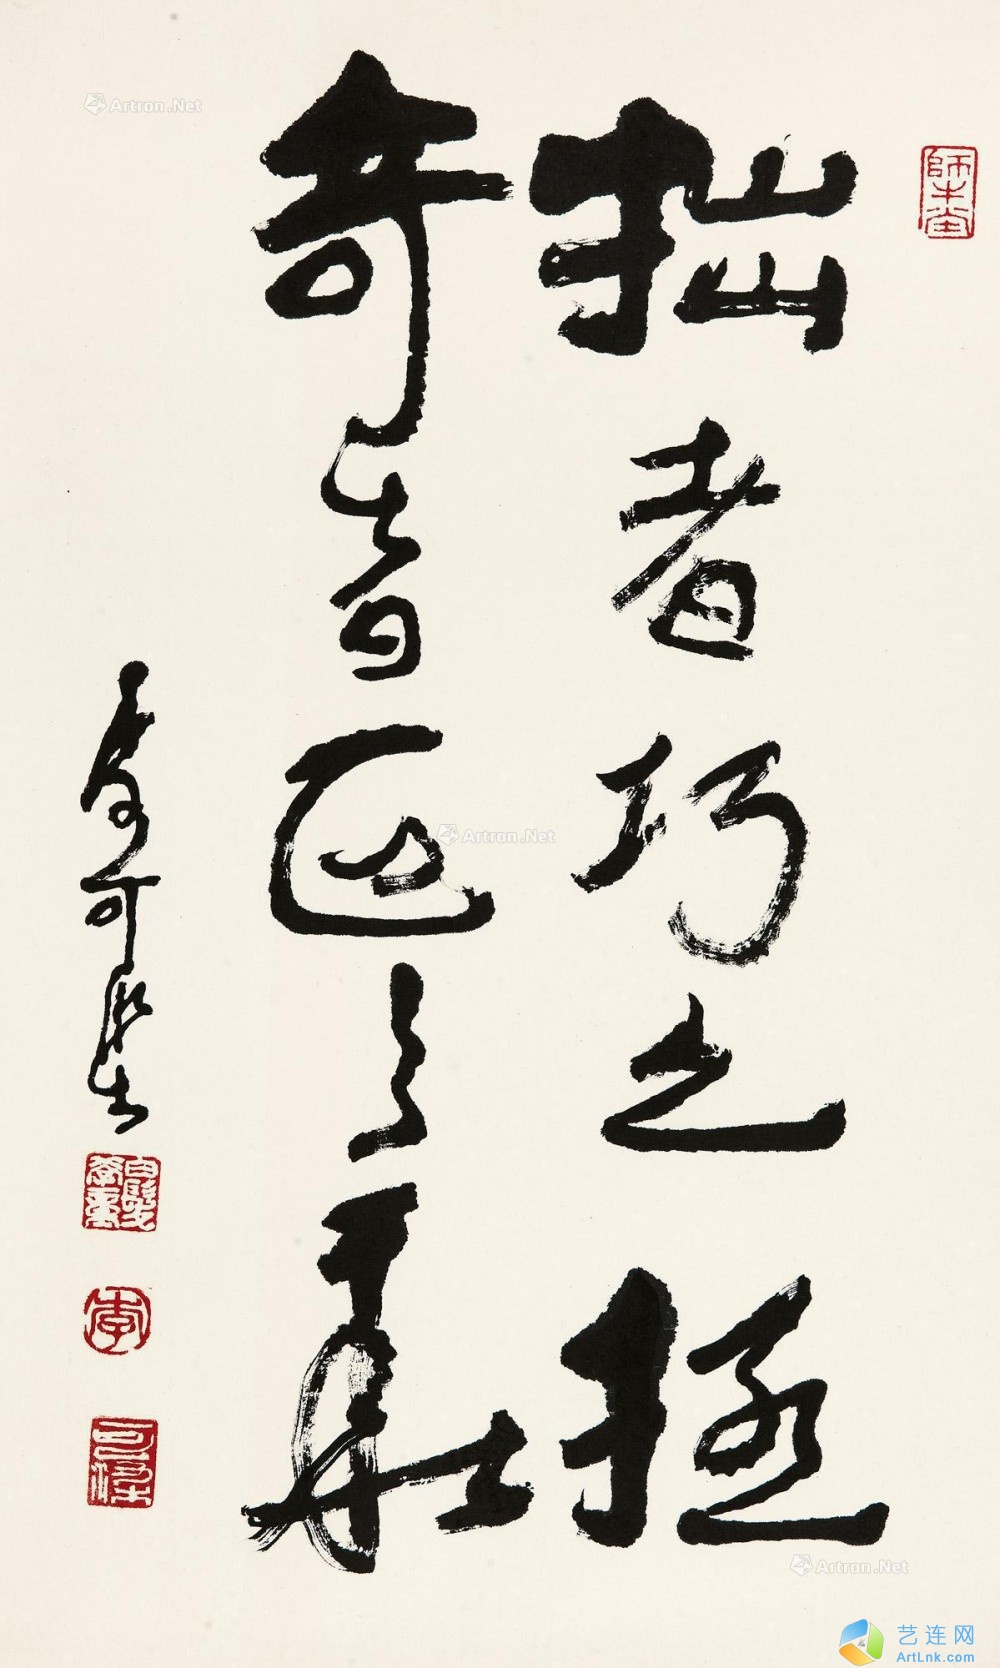 師牛堂
拙者巧之極
奇者正之華
李可染
白髮學童
李
可染
Artron.Net
Artron.Net
Artron.Net
艺连网
ArtLnk.com